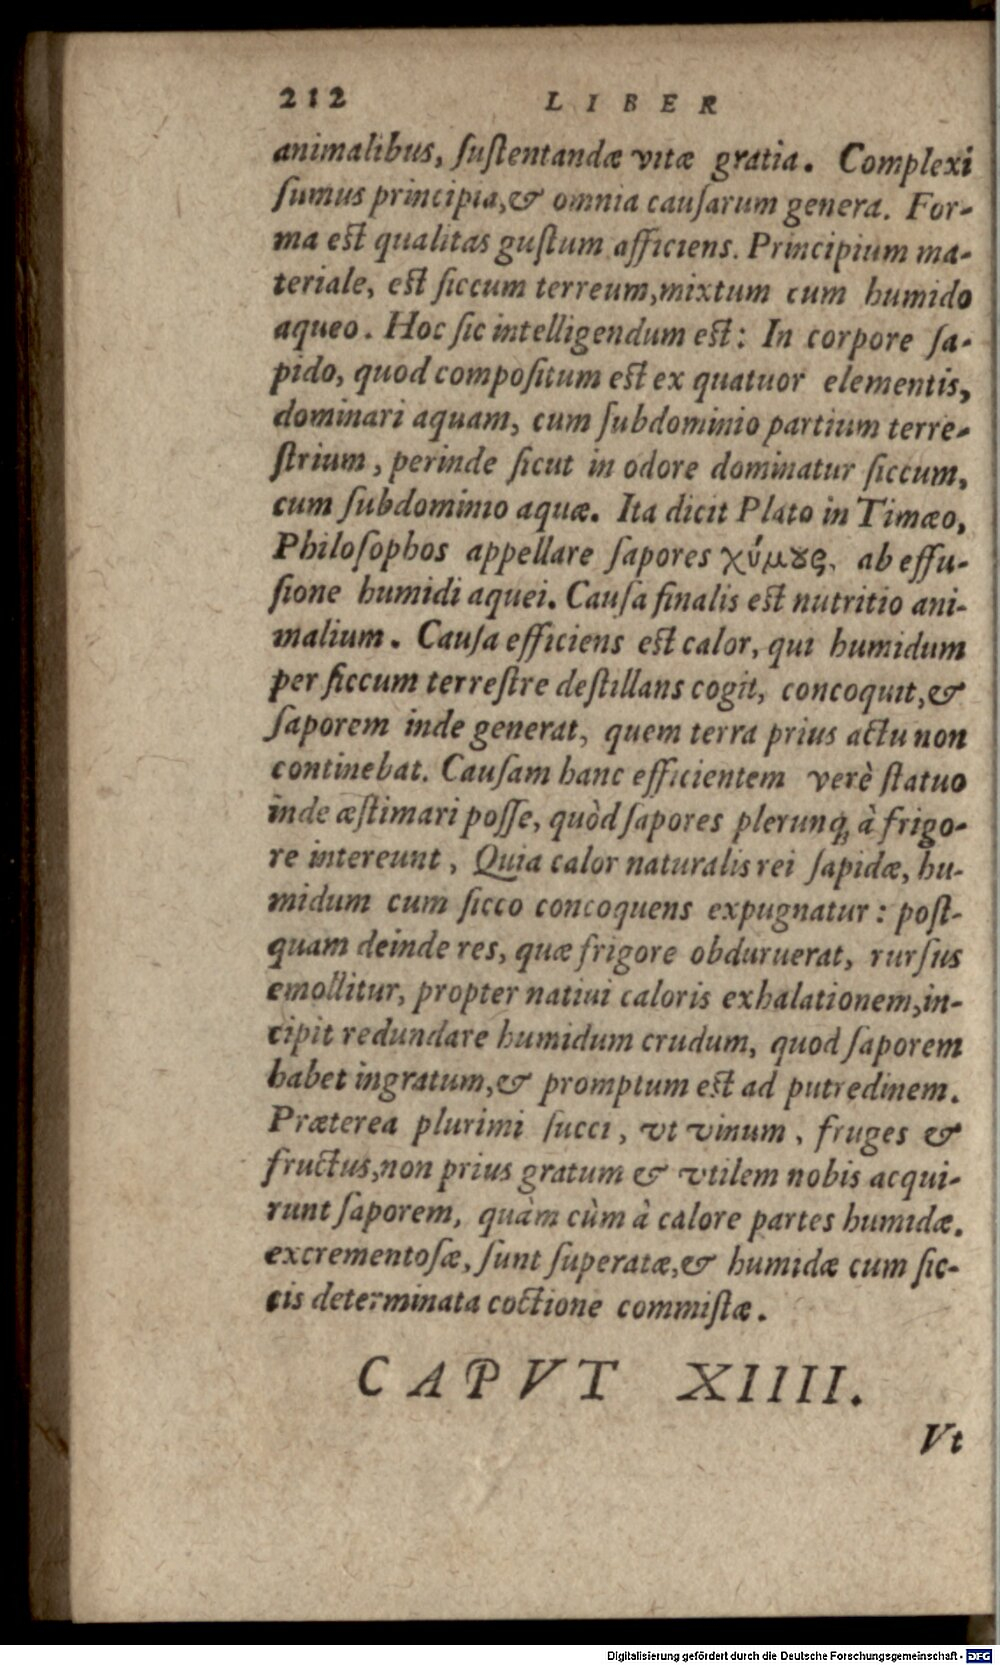 212 LIBER
animalibus, ſuſtentandæ vitæ gratia. Complexi
ſumus principia,& omnia cauſarum genera. For-
ma eſt qualitas guſtum afficiens. Principium ma-
teriale, eſt ſiccum terreum,mixtum cum humido
aqueo. Hoc ſic intelligendum eſt: In corpore ſa-
pido, quod compoſitum eſt ex quatuor elementis,
dominari aquam, cum ſubdominio partium terre-
ſtrium, perinde ſicut in odore dominatur ſiccum,
cum ſubdominio aquæ. Ita dicit Plato in Timæo,
Philoſophos appellare ſapores χύμȣς, ab effu-
ſione humidi aquei. Cauſa finalis eſt nutritio ani-
malium. Cauſa efficiens eſt calor, qui humidum
per ſiccum terreſtre deſtillans cogit, concoquit,&
ſaporem inde generat, quem terra prius actu non
continebat. Cauſam hanc efficientem verè ſtatuo
inde æſtimari poſſe, quòd ſapores plerunq; à frigo-
re intereunt, Quia calor naturalis rei ſapidæ, hu-
midum cum ſicco concoquens expugnatur: poſt-
quam deinde res, quæ frigore obduruerat, rurſus
emollitur, propter natiui caloris exhalationem,in-
cipit redundare humidum crudum, quod ſaporem
habet ingratum,& promptum eſt ad putredinem.
Præterea plurimi ſucci, vt vinum, fruges &
fructus,non prius gratum & vtilem nobis acqui-
runt ſaporem, quàm cùm à calore partes humidæ.
excrementoſæ, ſunt ſuperatæ,& humidæ cum ſic-
cis determinata coctione commiſtæ.
CAPVT XIIII.
Vt
Digitalisierung gefördert durch die Deutsche Forschungsgemeinschaft - DFG